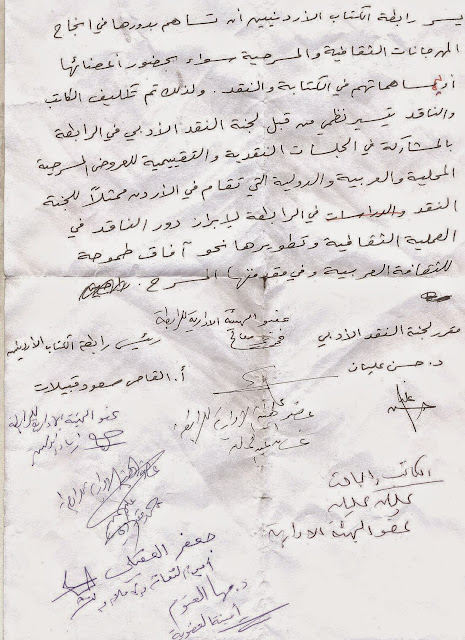 يسر رابطة الكتاب الأردنيين أن تساهم بدورها في انجاح
المهرجانات الثقافية والمسرحية سواء بحضور أعضائها
أو بمساهماتهم في الكتابة والنقد. ولذلك تم تكليف الكاتب
والناقد تيسير نظمي من قبل لجنة النقد الأدبي في الرابطة
بالمشاركة في الجلسات النقدية والتقييمية للعروض المسرحية
المحلية والعربية والدولية التي تقام في الأردن ممثلاً للجنة
النقد والدراسات في الرابطة لإبراز دور الناقد في
العملية الثقافية وتطويرها نحو آفاق طموحة
للثقافة العربية وفي مقدمتها المسرح.
عضو الهيئة الادارية للرابطة
مقرر لجنة النقد الأدبي
رئيس رابطة الكتاب الأردنيين
د. حسن عليان
أ. القاص سعود قبيلات
عضو الهيئة الادارية للرابطة
عضو الهيئة الادارية للرابطة
عضو الهيئة الادارية للرابطة
الكاتب والباحث
عليان عليان
عضو الهيئة الادارية
جعفر العقيلي
د. مها العتوم
أمينة العضوية